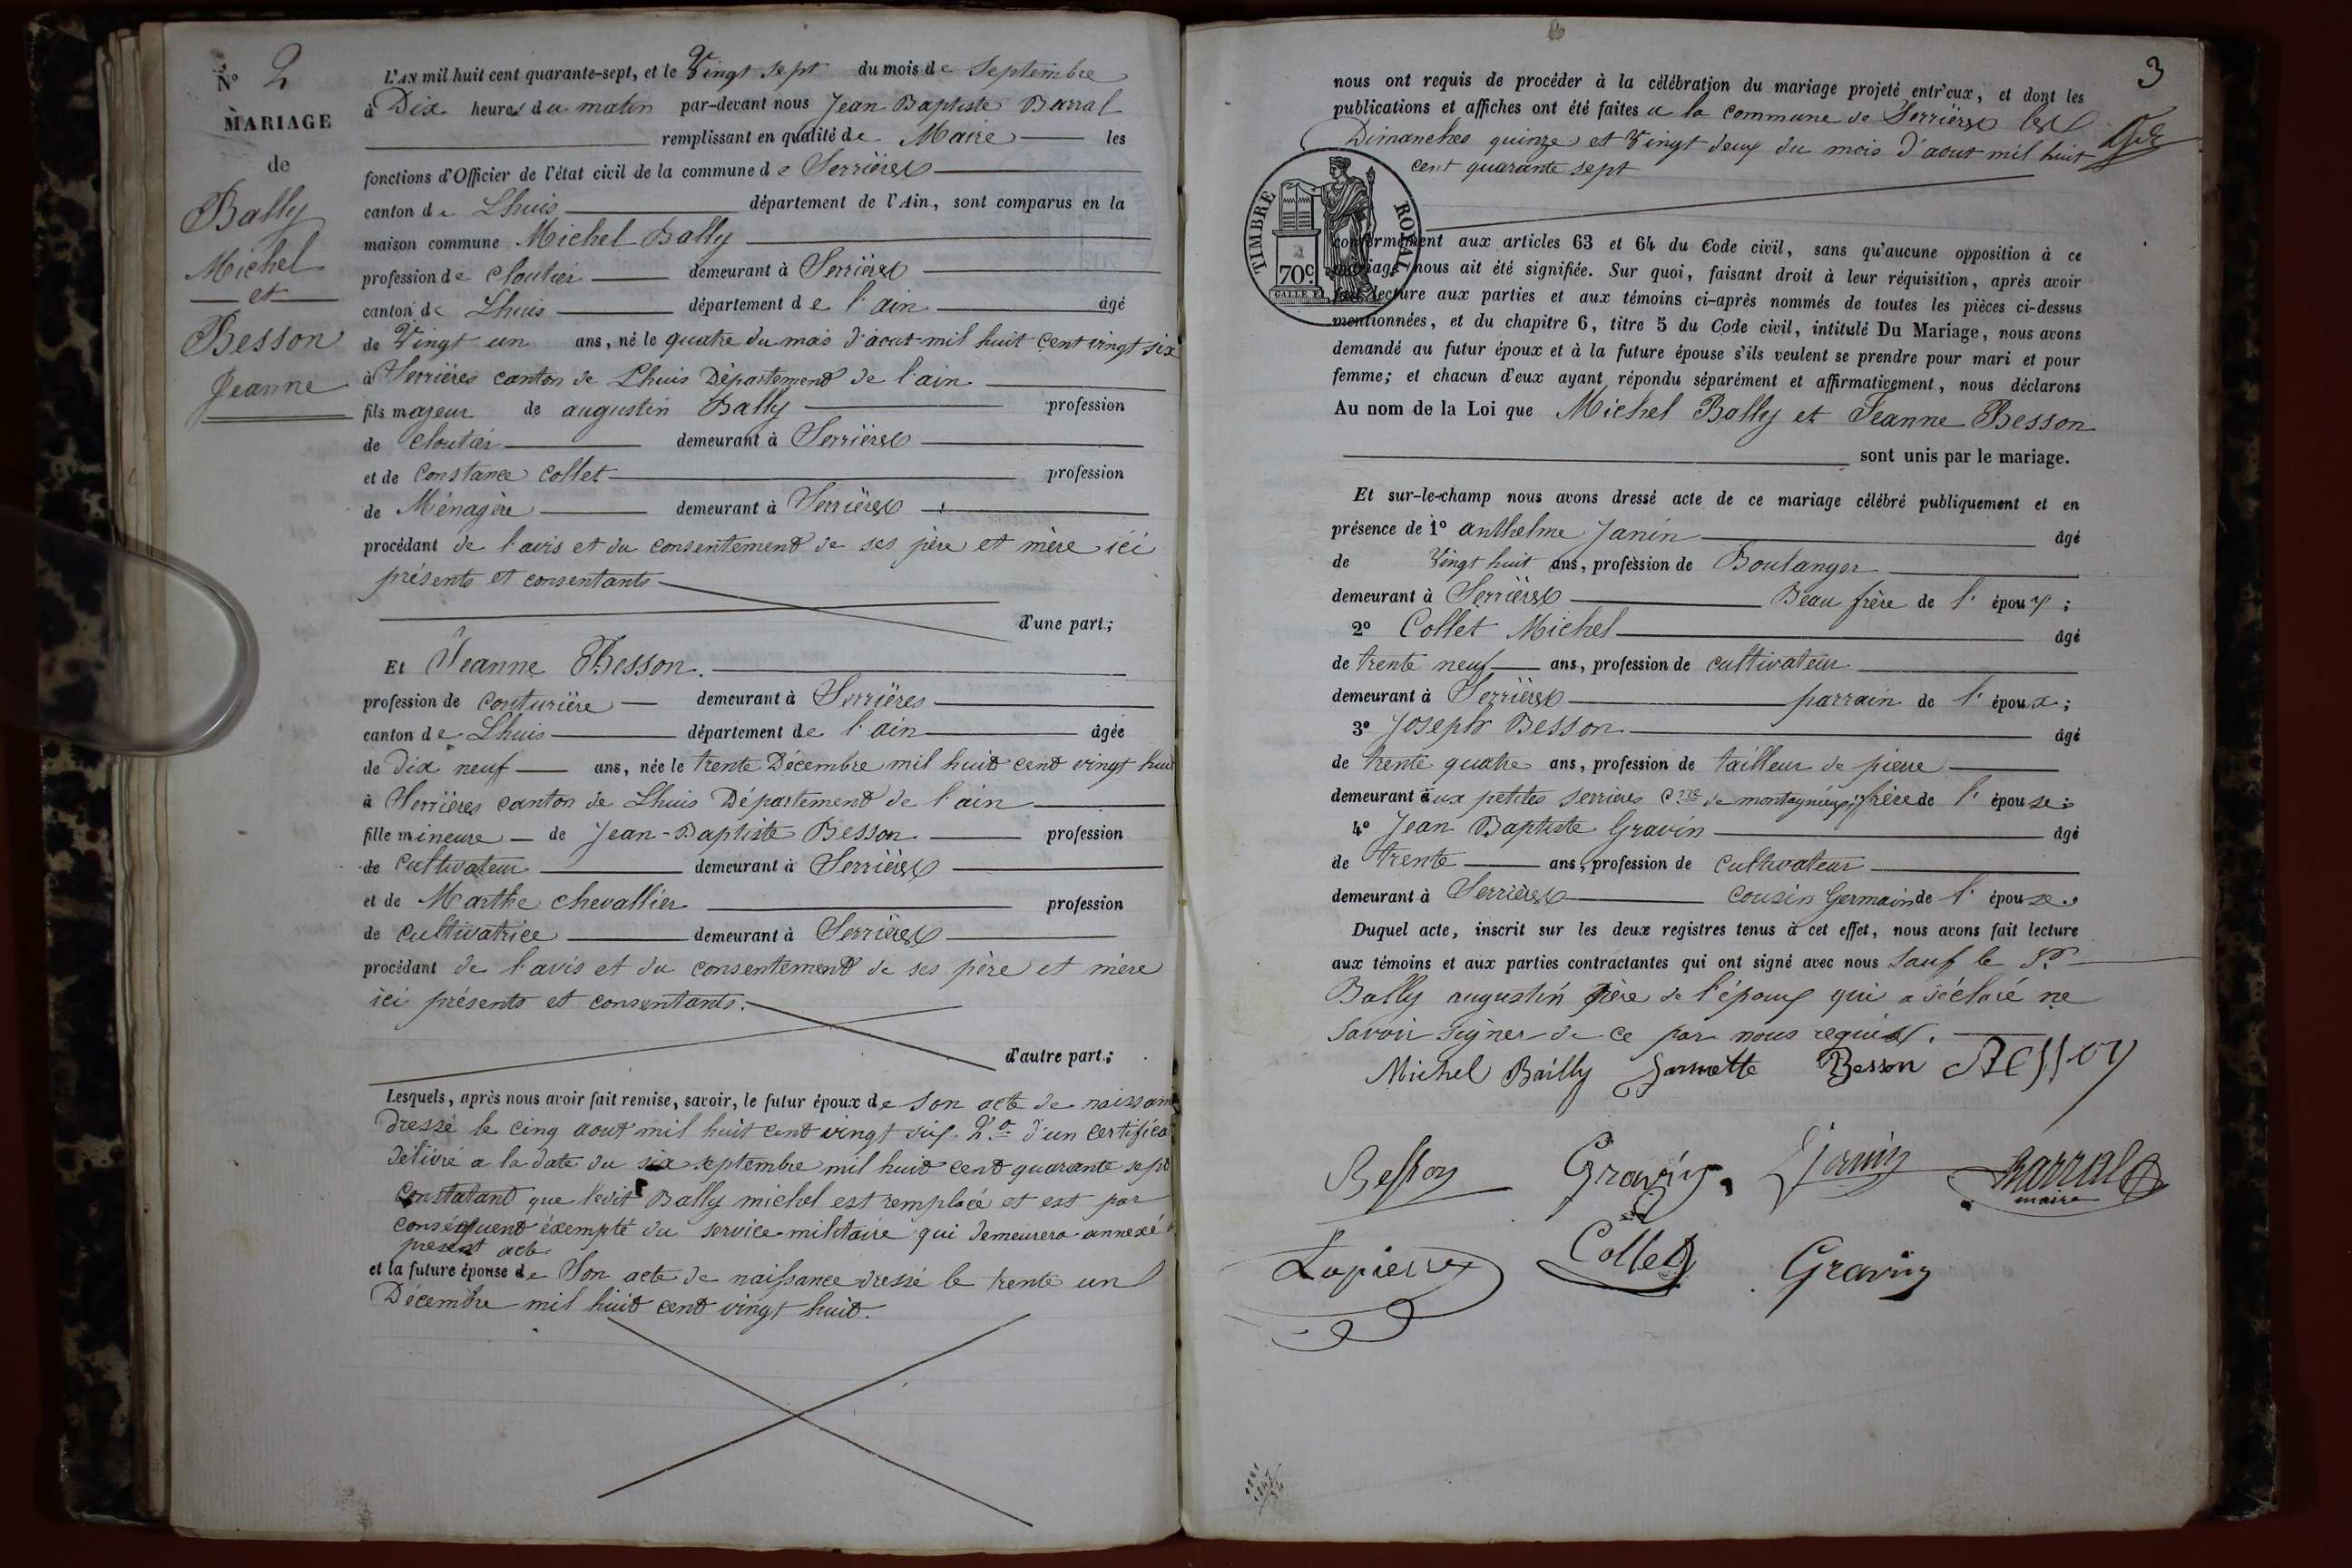 N° 2
MARIAGE
de
Bally
Michel
et
Besson
Jeanne
L'AN mil huit cent quarante-sept, et le Vingt sept du mois de Septembre
à Dix heures du matin par-devant nous Jean-Baptiste Barral
remplissant en qualité de Maire les
fonctions d'Officier de l'état civil de la commune de Serrières
canton de Lhuis département de l'Ain, sont comparus en la
maison commune Michel Bally
profession de cloutier demeurant à Serrières
canton de Lhuis département de l'ain âgé
de Vingt un ans, né le quatre du mois d'aout mil huit cent vingt six
à Serrières canton de Lhuis Département de l'ain
fils majeur de augustin Bally profession
de cloutier demeurant à Serrières
et de Constance Collet profession
de Ménagère demeurant à Serrières
procédant de l'avis et du consentement de ses père et mère ici
présents et consentants
d'une part;
Et Jeanne Besson.
profession de couturière demeurant à Serrières
canton de Lhuis département de l'ain âgée
de Dix neuf ans, née le trente Décembre mil huit cent vingt huit
à Serrières canton de Lhuis Département de l'ain
fille mineure de Jean-Baptiste Besson profession
de Cultivateur demeurant à Serrières
et de Marthe Chevallier profession
de cultivatrice demeurant à Serrières
procédant de l'avis et du consentement de ses père et mère
ici présents et consentants.
d'autre part;
Lesquels, après nous avoir fait remise, savoir, le futur époux de son acte de naissan
Dressé le cinq aout mil huit cent vingt six. 2° d'un certifica
délivré a la date du six septembre mil huit cent quarante sept
Constatant que ledit Bally michel est remplacé et est par
conséquent éxempté du service militaire qui demeurera annexé
présent acte
et la future épouse de Son acte de naissance dressé le trente un
Décembre mil huit cent vingt huit.
3
nous ont requis de procéder à la célébration du mariage projeté entr'eux, et dont les
publications et affiches ont été faites a la commune de Serrières les
Dimanches quinze et Vingt deux du mois d'aout mil huit
cent quarante sept
TIMBRE ROYAL
70c.
conformément aux articles 63 et 64 du Code civil, sans qu'aucune opposition à ce
mariage nous ait été signifiée. Sur quoi, faisant droit à leur réquisition, après avoir
fait lecture aux parties et aux témoins ci-après nommés de toutes les pièces ci-dessus
mentionnées, et du chapitre 6, titre 5 du Code civil, intitulé Du Mariage, nous avons
demandé au futur époux et à la future épouse s'ils veulent se prendre pour mari et pour
femme; et chacun d'eux ayant répondu séparément et affirmativement, nous déclarons
Au nom de la Loi que Michel Bally et Jeanne Besson
sont unis par le mariage.
Et sur-le-champ nous avons dressé acte de ce mariage célébré publiquement et en
présence de 1° anthelme Janin âgé
de Vingt huit ans, profession de Boulanger
demeurant à Serrières Beau frère de l'époux;
2° Collet Michel âgé
de trente neuf ans, profession de cultivateur
demeurant à Serrières parrain de l'époux;
3° Joseph Besson âgé
de trente quatre ans, profession de tailleur de pierre
demeurant aux petites serrieres Cne de montagnieu; frère de l'épouse;
4° Jean Baptiste Gravin âgé
de trente ans, profession de cultivateur
demeurant à Serrières cousin Germain de l'épouse.
Duquel acte, inscrit sur les deux registres tenus à cet effet, nous avons fait lecture
aux témoins et aux parties contractantes qui ont signé avec nous Sauf le Sr
Bally augustin père de l'époux qui a déclaré ne
Savoir signer de ce par nous requis.
Michel Bailly Besson Besson
Besson Gravin Janin Barral
maire
Lapierre Collet Gravin